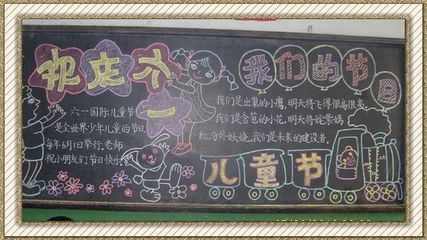 祝庆六一
我们的节日
六一国际儿童节
是全世界少年儿童的节日
每年6月1日举行,老师
祝小朋友们节日快乐
我们是出巢的小鹰,明天将飞得很高很高
我们是含苞的小花,明天将姹紫嫣
红,分外妖娆,我们是未来的建设者,
儿童节